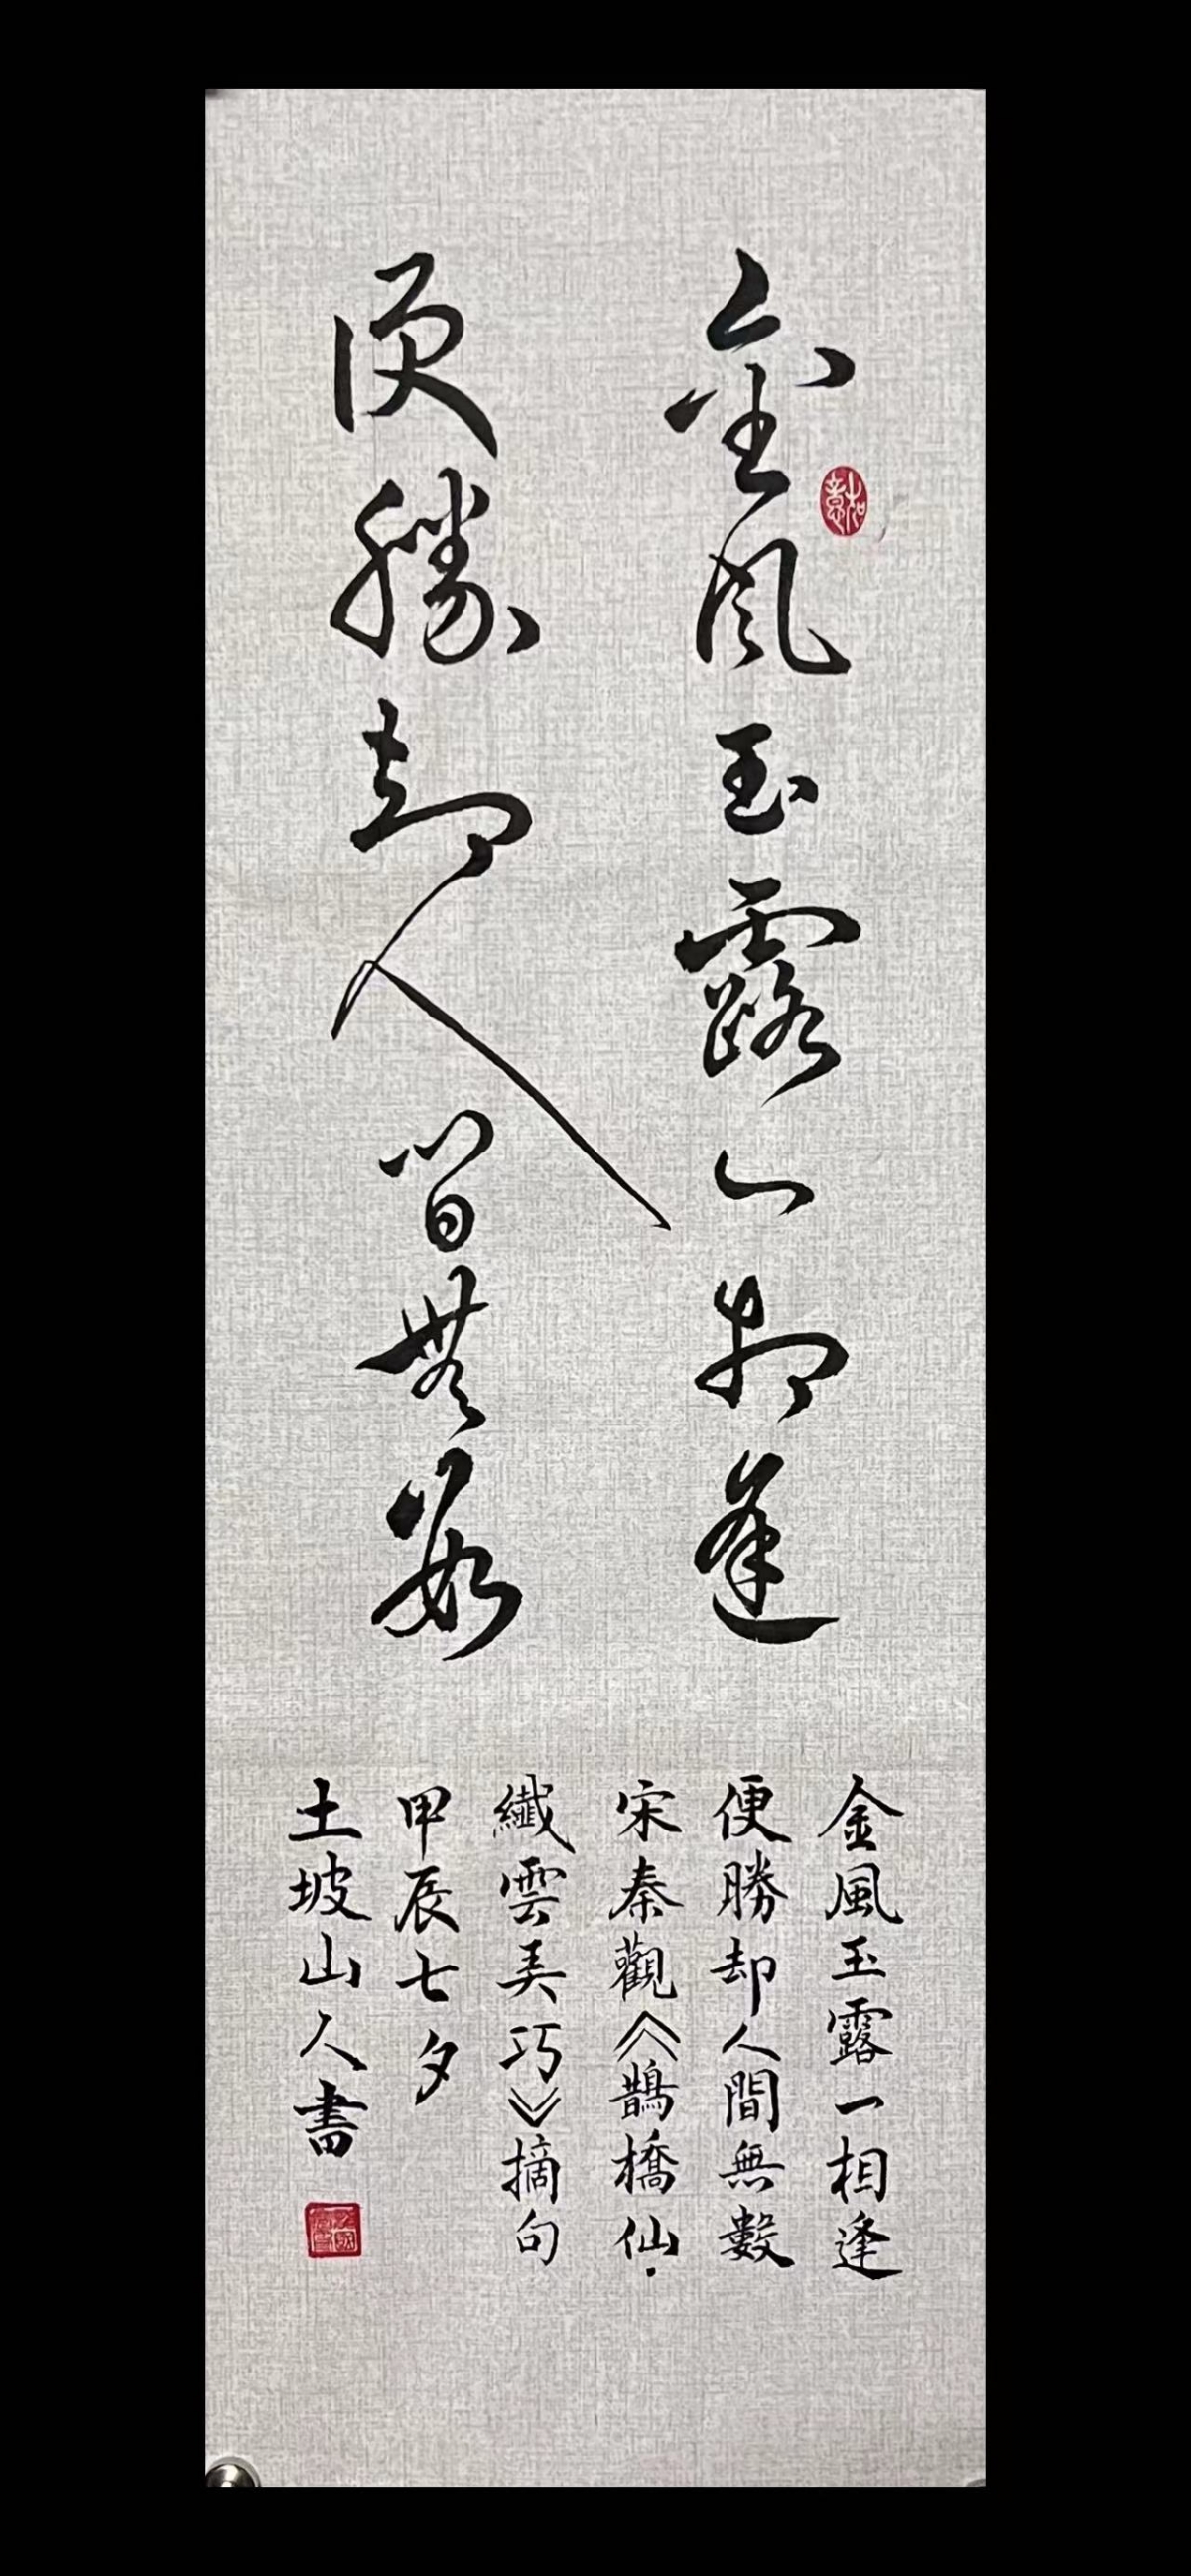 金風玉露一相逢
便勝却人間無數
金風玉露一相逢
便勝却人間無數
宋秦觀《鵲橋仙·
纖雲弄巧》摘句
甲辰七夕
土坡山人書